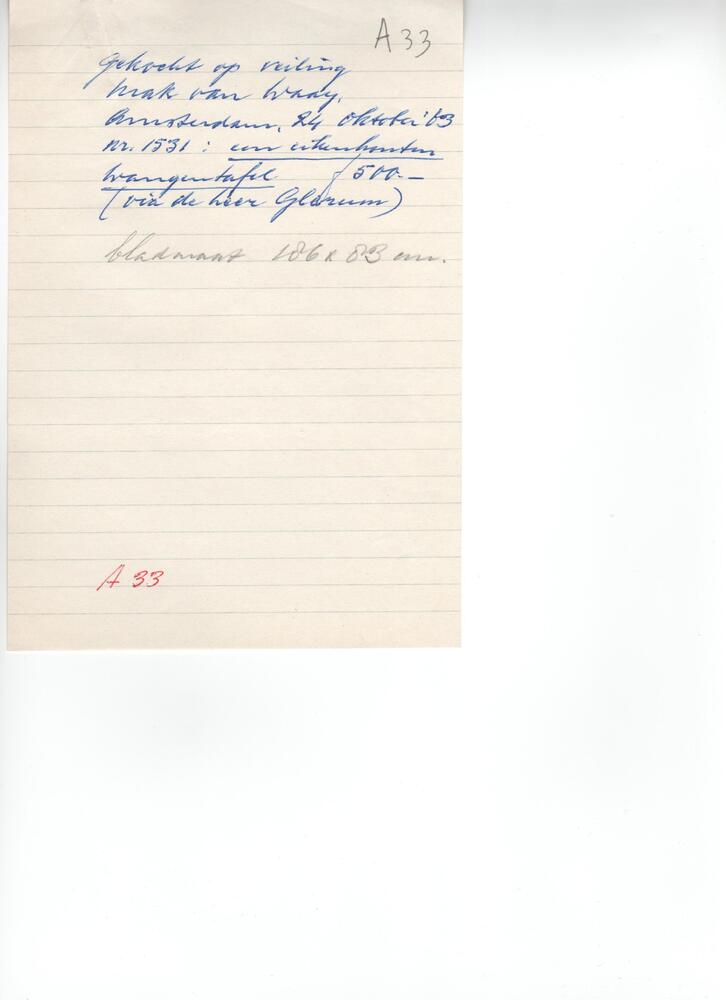 A 33
gekocht op veiling
Mak van Waay,
Amsterdam, 24 oktober '63
nr. 1531 : een eikenhouten
wangentafel ƒ 500.—
(via de heer Glerum)
bladmaat 186 x 83 cm.
A 33